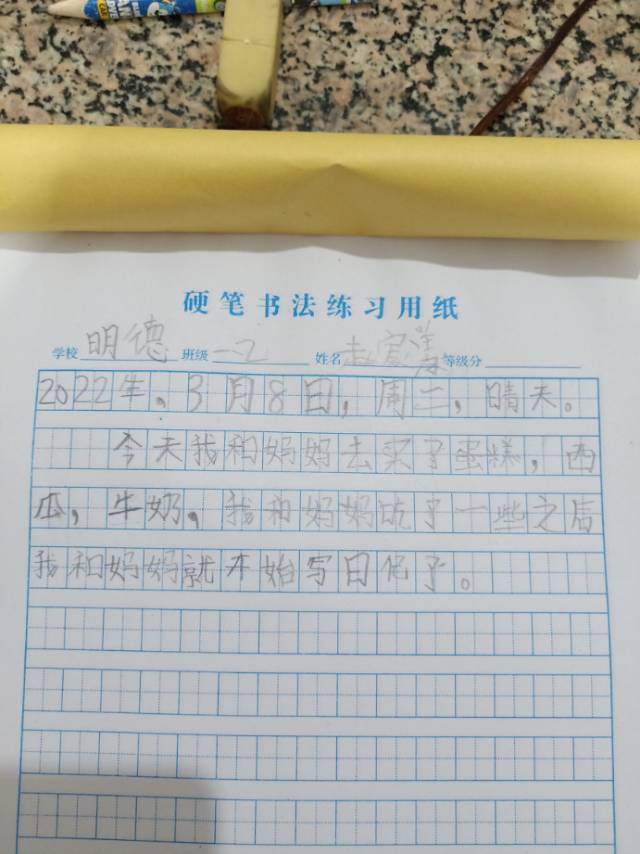 硬笔书法练习用纸
学校 明德 班级 一2 姓名 赵 等级分
2022年。3月8日，周二，晴天。
今天我和妈妈去买了蛋糕，西
瓜，牛奶，我和妈妈吃了一些之后
我和妈妈就木始写日化了。